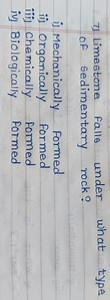 7) limestone falls under what type
of sedimentary rock?
i) Mechanically formed
ii) Organically formed
iii) chemically formed
iv) Biologically formed